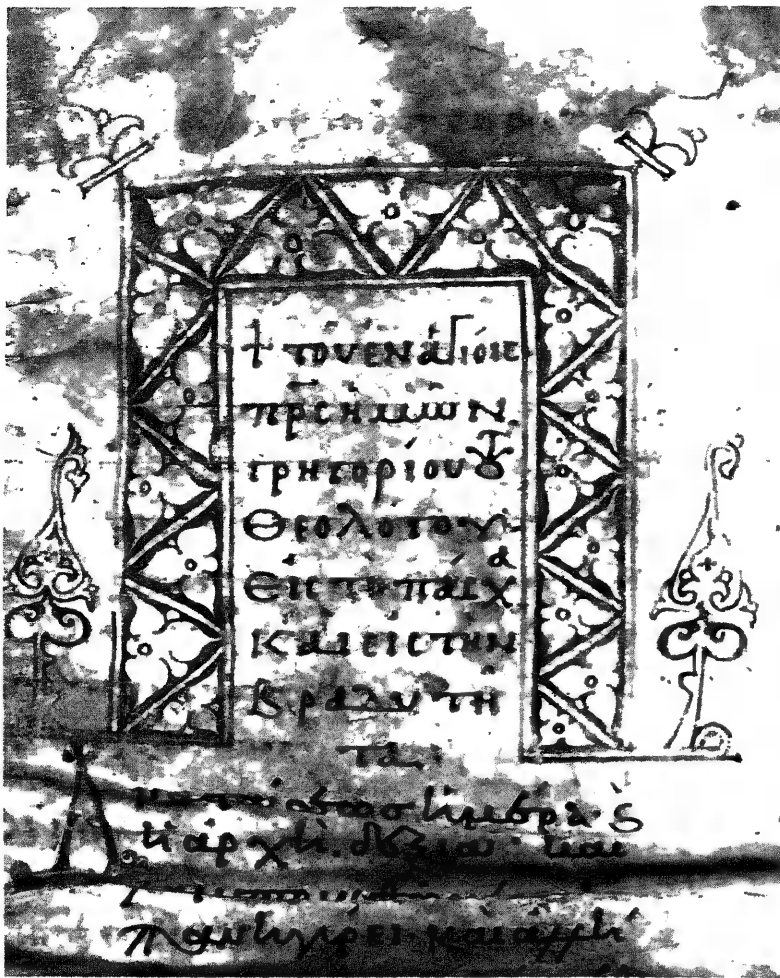 † τοῦ ἐν ἁγίοις
πρς ἡμῶν
γρηγορίου τοῦ
θεολόγου
εἰς τὸ πάσχα
καὶ εἰς τὴν
βραδυτῆ
τα:
Ἀναστάσεως ἡμέρα· καὶ
ἡ ἀρχὴ δεξιά· καὶ
πανηγύρει· καὶ ἀλλή